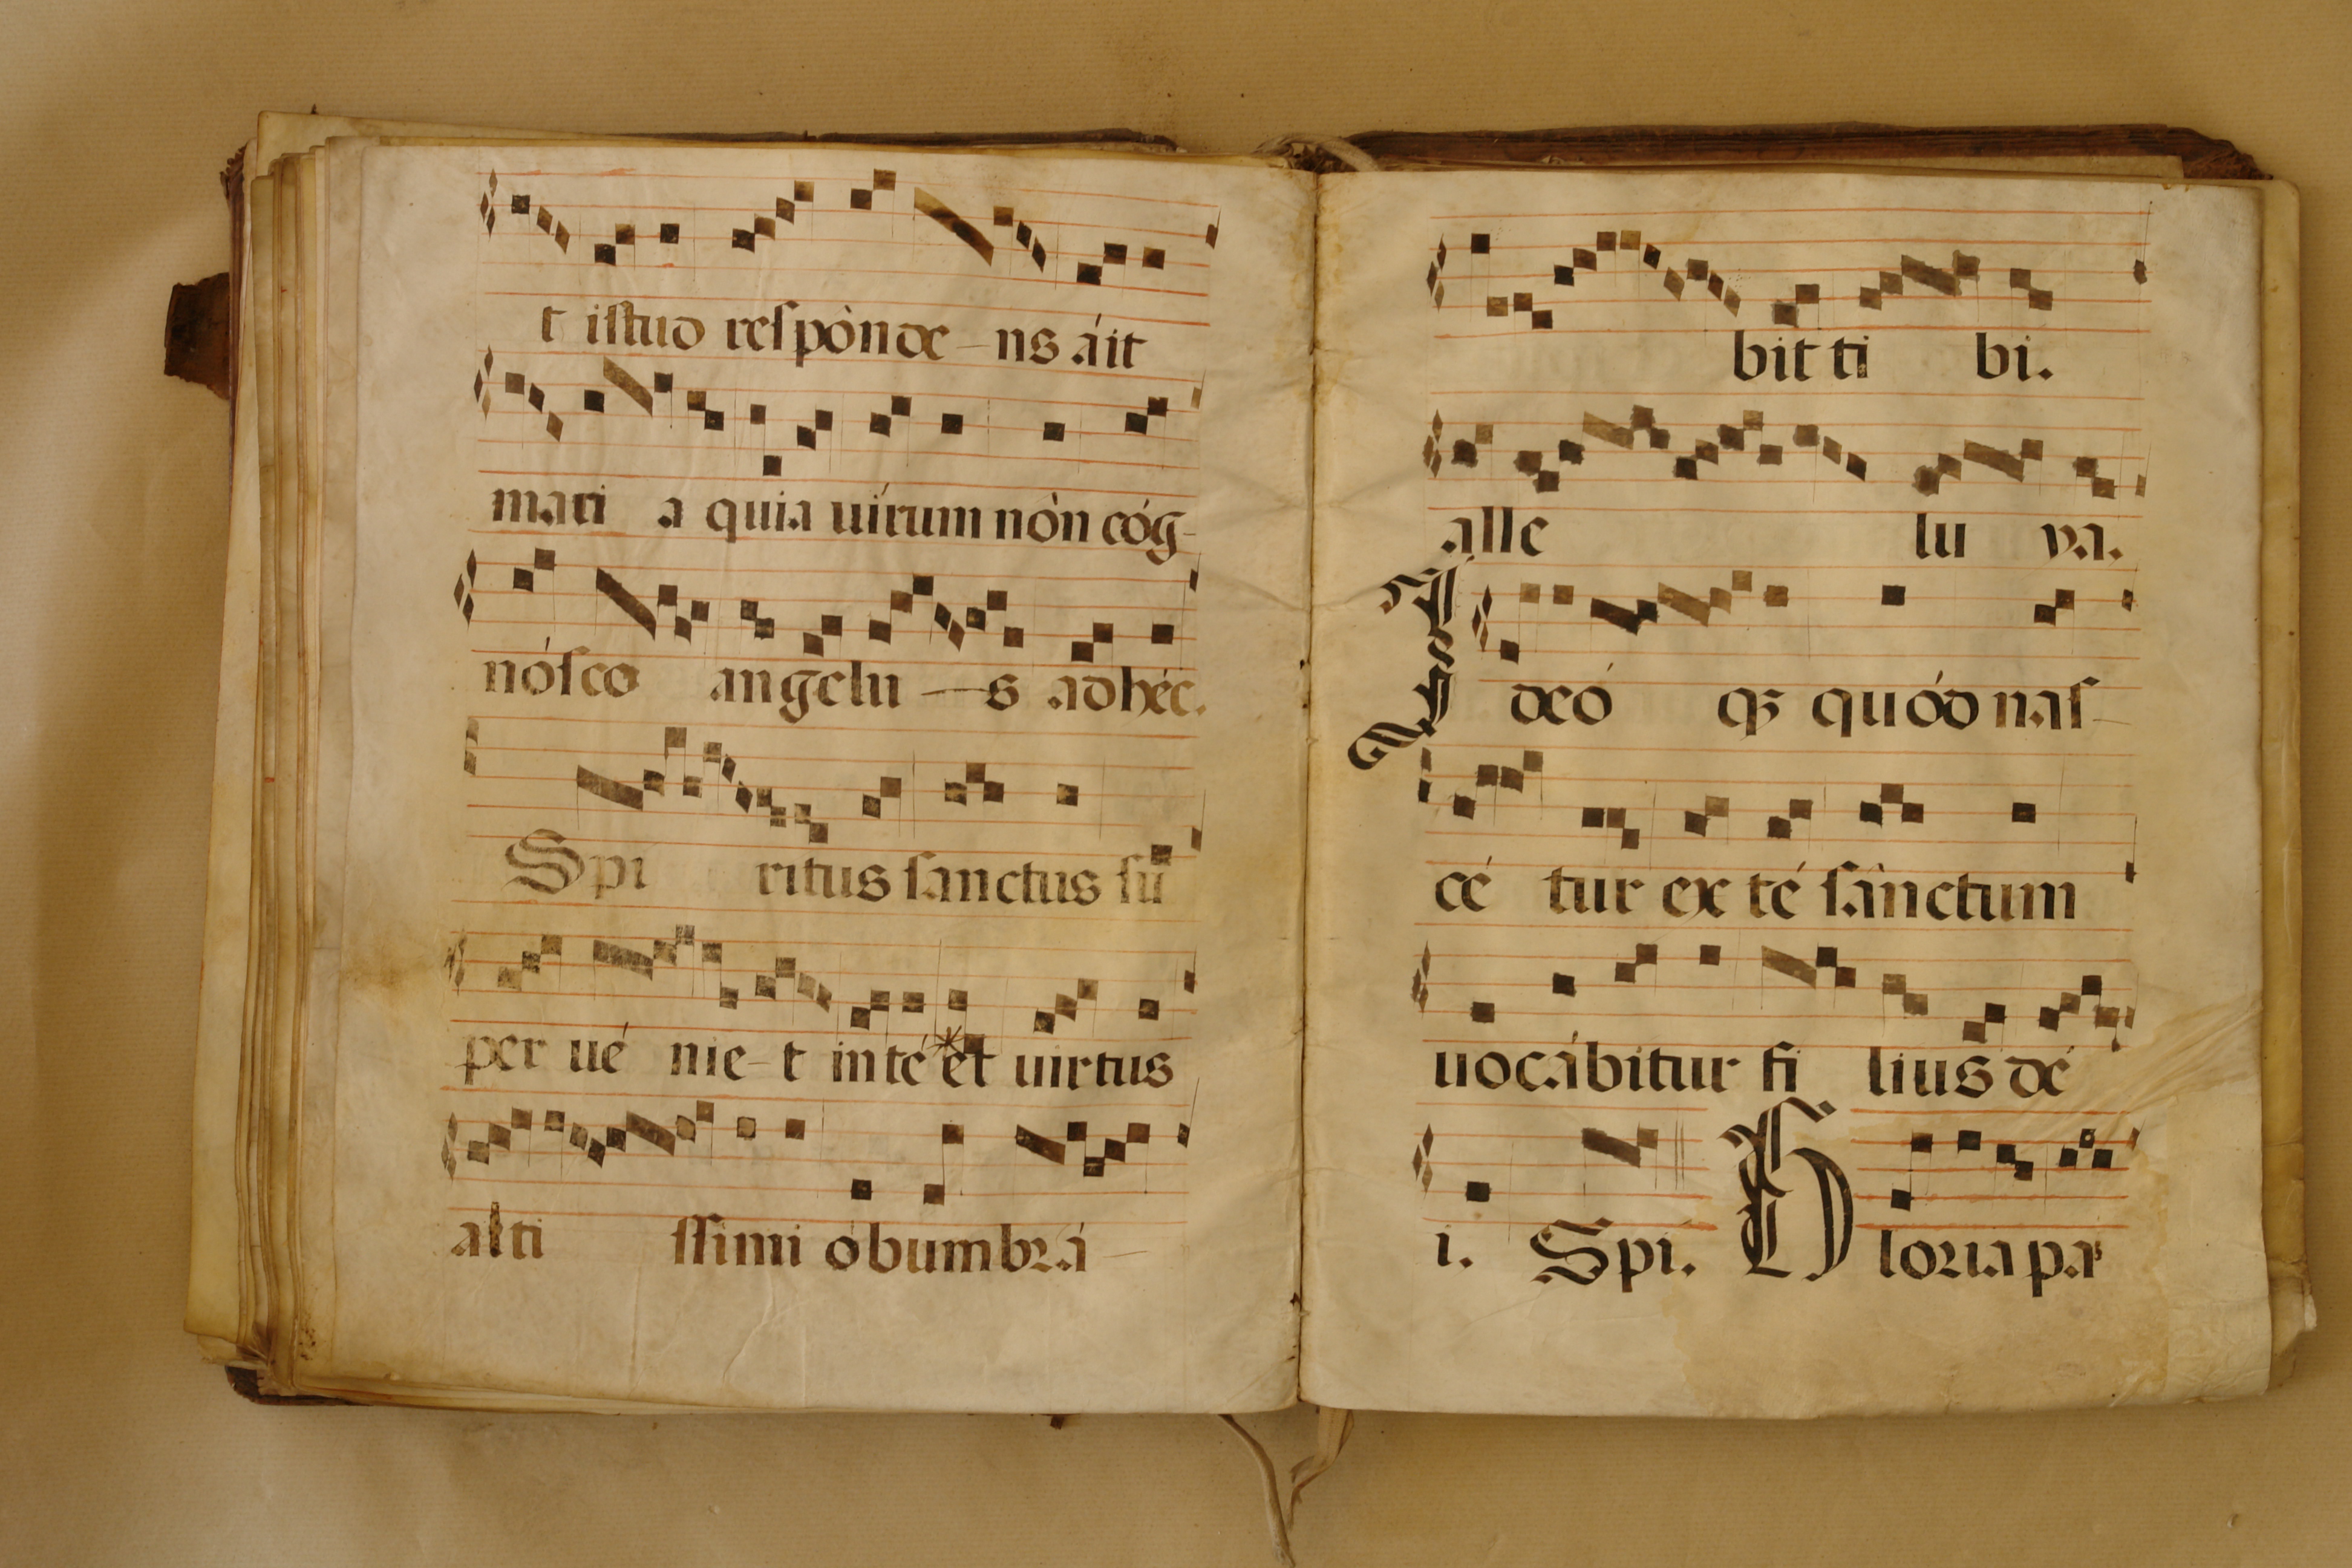 t istud respònde-ns áit
mari a quia uírum nòn cóg-
nósco angelu-s ad héc.
Spi ritus sanctus su
per ué nie-t in té * et uirtus
alti ssimi obumbrá-
bit ti bi.
alle lu ya.
I deó q3 quód nas-
cé tur ex té sánctum
uocábitur fi lius dé
i. Spi. Gloria pa